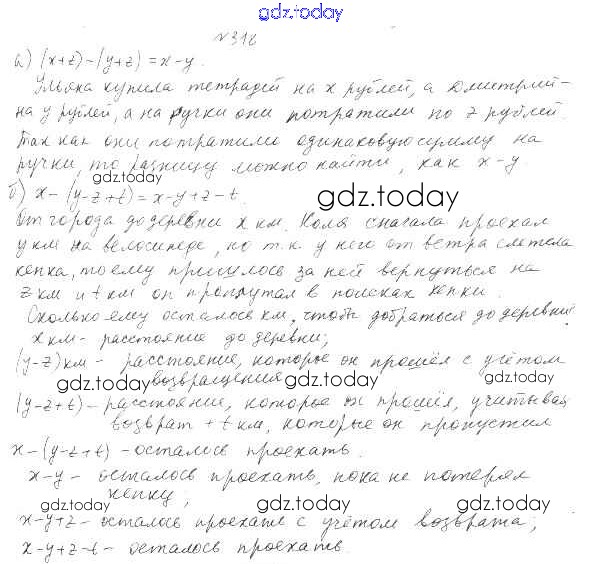 gdz.today
№316
а) (x+z)-(y+z)=x-y.
Ульяна купила тетрадей на x рублей, а Дмитрий-
на y рублей, а на ручки они потратили по z рублей.
Так как они потратили одинаковую сумму на
ручки, то разницу можно найти, как x-y.
gdz.today
б) x-(y-z+t)=x-y+z-t.
gdz.today
От города до деревни x км. Коля сначала проехал
y км на велосипеде, но т.к. у него от ветра слетела
кепка, то ему пришлось за ней вернуться на
z км и t км он пропутал в поисках кепки.
Сколько ему осталось км, чтобы добраться до деревни?
x км - расстояние до деревни;
gdz.today
(y-z)км - расстояние, которое он прошёл с учётом
возвращения
gdz.today
gdz.today
(y-z+t)-расстояние, которое он прошёл, учитывая
возврат + t км, которые он пропустил
x-(y-z+t) -осталось проехать.
x-y- осталось проехать, пока не потерял
кепку;
gdz.today
gdz.today
gdz.today
x-y+z-осталось проехать с учётом возврата;
x-y+z-t- осталось проехать.